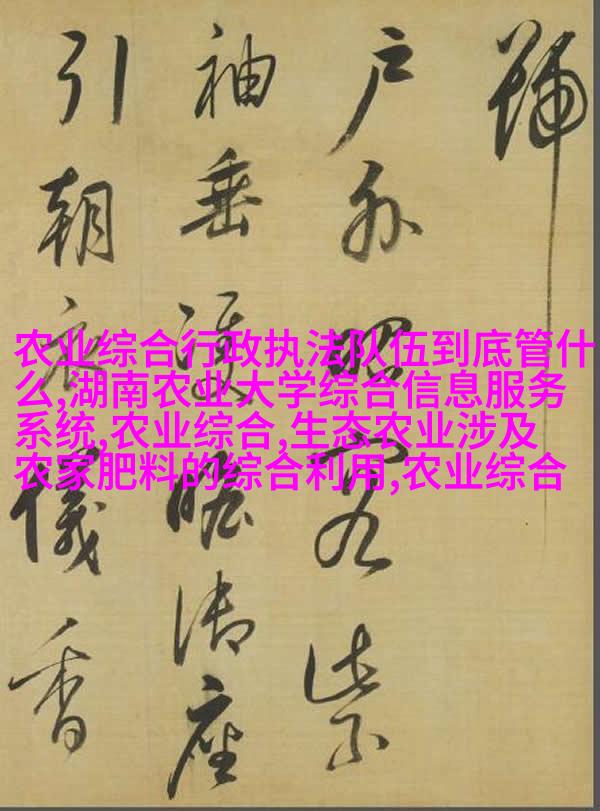 號
户外昭容紫
袖垂雙瞻御座
引朝衣儀香
农业综合行政执法队伍到底管什
么,湖南农业大学综合信息服务
系统,农业综合,生态农业涉及
农家肥料的综合利用,农业综合